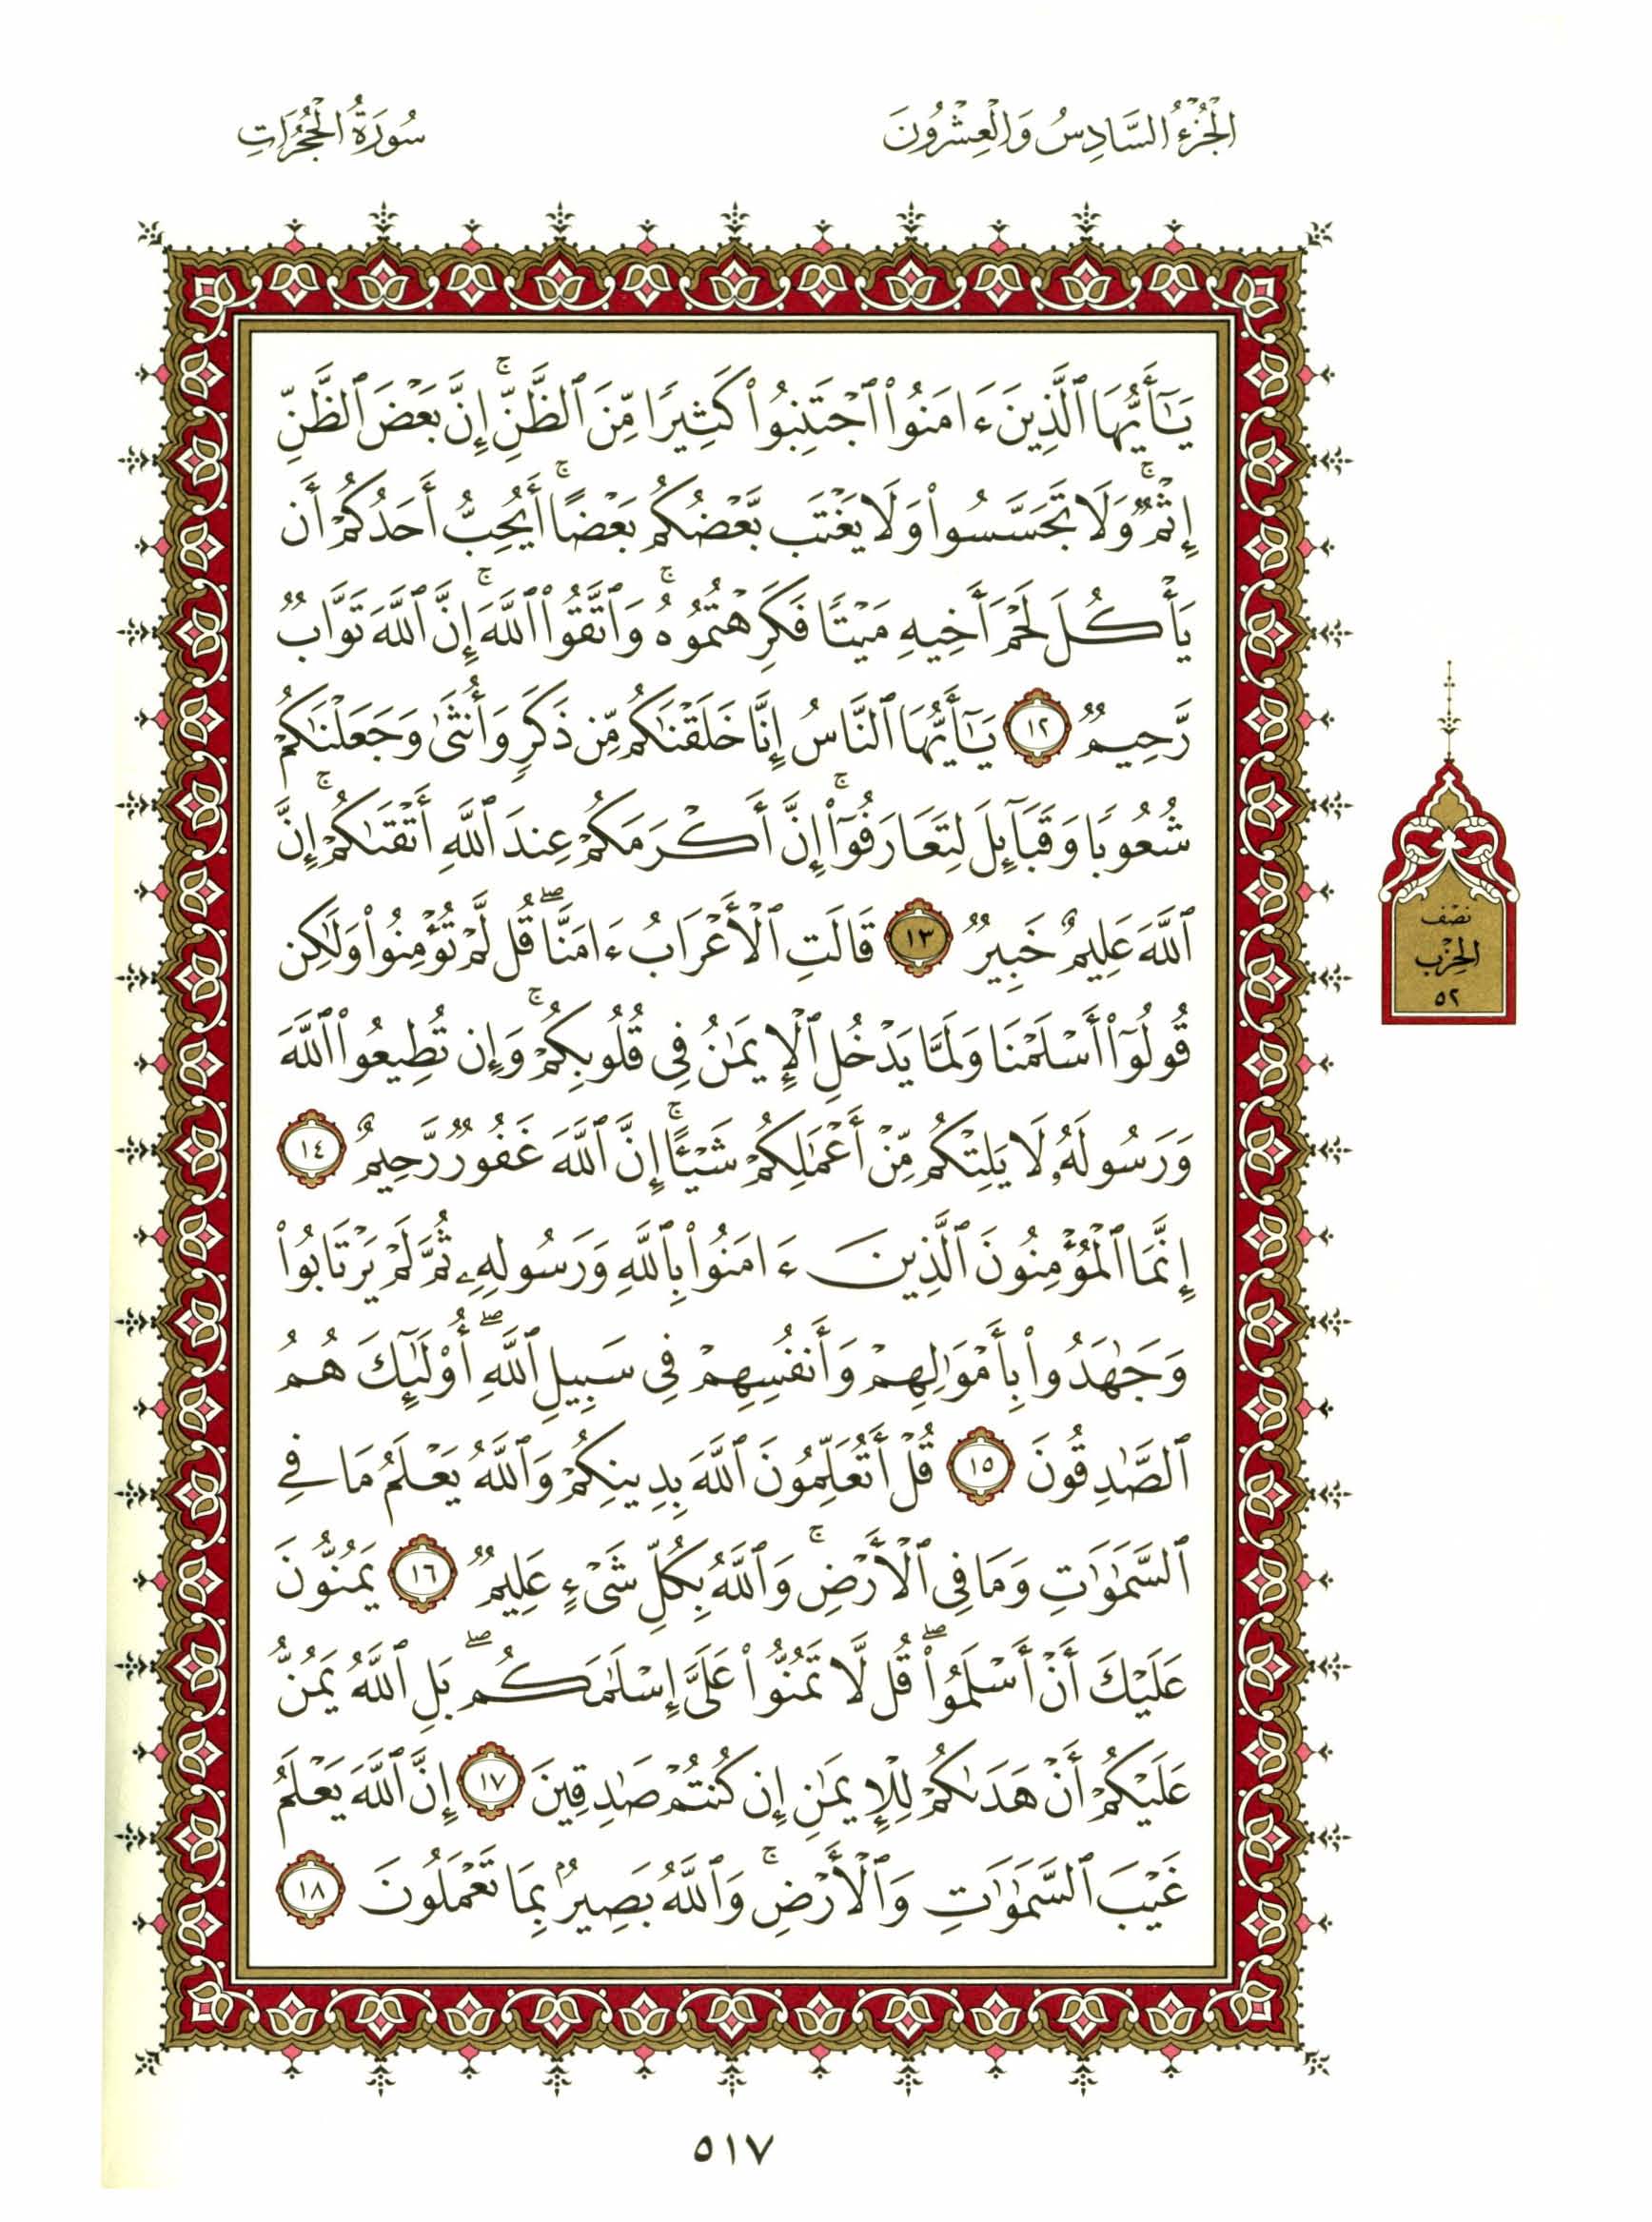 الجُزْءُ السَّادِسُ وَالْعِشْرُونَ
سُورَةُ الحُجُرَاتِ
يَـٰٓأَيُّهَا ٱلَّذِينَ ءَامَنُوا۟ ٱجْتَنِبُوا۟ كَثِيرًا مِّنَ ٱلظَّنِّ إِنَّ بَعْضَ ٱلظَّنِّ
إِثْمٌ ۖ وَلَا تَجَسَّسُوا۟ وَلَا يَغْتَب بَّعْضُكُم بَعْضًا ۚ أَيُحِبُّ أَحَدُكُمْ أَن
يَأْكُلَ لَحْمَ أَخِيهِ مَيْتًا فَكَرِهْتُمُوهُ ۚ وَٱتَّقُوا۟ ٱللَّهَ ۚ إِنَّ ٱللَّهَ تَوَّابٌ
رَّحِيمٌ ١٢ يَـٰٓأَيُّهَا ٱلنَّاسُ إِنَّا خَلَقْنَـٰكُم مِّن ذَكَرٍ وَأُنثَىٰ وَجَعَلْنَـٰكُمْ
شُعُوبًا وَقَبَآئِلَ لِتَعَارَفُوٓا۟ ۚ إِنَّ أَكْرَمَكُمْ عِندَ ٱللَّهِ أَتْقَىٰكُمْ ۚ إِنَّ
ٱللَّهَ عَلِيمٌ خَبِيرٌ ١٣ قَالَتِ ٱلْأَعْرَابُ ءَامَنَّا ۖ قُل لَّمْ تُؤْمِنُوا۟ وَلَـٰكِن
قُولُوٓا۟ أَسْلَمْنَا وَلَمَّا يَدْخُلِ ٱلْإِيمَـٰنُ فِى قُلُوبِكُمْ ۚ وَإِن تُطِيعُوا۟ ٱللَّهَ
وَرَسُولَهُۥ لَا يَلِتْكُم مِّنْ أَعْمَـٰلِكُمْ شَيْـًٔا ۚ إِنَّ ٱللَّهَ غَفُورٌ رَّحِيمٌ ١٤
إِنَّمَا ٱلْمُؤْمِنُونَ ٱلَّذِينَ ءَامَنُوا۟ بِٱللَّهِ وَرَسُولِهِۦ ثُمَّ لَمْ يَرْتَابُوا۟
وَجَـٰهَدُوا۟ بِأَمْوَٰلِهِمْ وَأَنفُسِهِمْ فِى سَبِيلِ ٱللَّهِ ۖ أُو۟لَـٰٓئِكَ هُمُ
ٱلصَّـٰدِقُونَ ١٥ قُلْ أَتُعَلِّمُونَ ٱللَّهَ بِدِينِكُمْ وَٱللَّهُ يَعْلَمُ مَا فِى
ٱلسَّمَـٰوَٰتِ وَمَا فِى ٱلْأَرْضِ ۚ وَٱللَّهُ بِكُلِّ شَىْءٍ عَلِيمٌ ١٦ يَمُنُّونَ
عَلَيْكَ أَنْ أَسْلَمُوا۟ ۖ قُل لَّا تَمُنُّوا۟ عَلَىَّ إِسْلَـٰمَكُم ۖ بَلِ ٱللَّهُ يَمُنُّ
عَلَيْكُمْ أَنْ هَدَىٰكُمْ لِلْإِيمَـٰنِ إِن كُنتُمْ صَـٰدِقِينَ ١٧ إِنَّ ٱللَّهَ يَعْلَمُ
غَيْبَ ٱلسَّمَـٰوَٰتِ وَٱلْأَرْضِ ۚ وَٱللَّهُ بَصِيرٌۢ بِمَا تَعْمَلُونَ ١٨
نصف
الحزب
٥٢
٥١٧